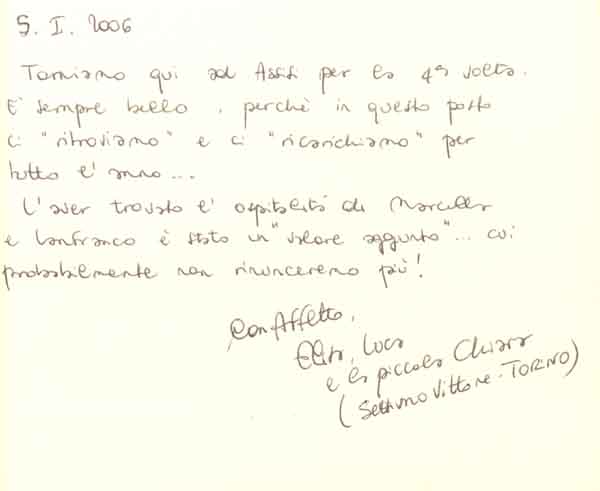 5. I. 2006
Torniamo qui ad Assisi per la 4ª volta.
E' sempre bello, perchè in questo posto
ci "ritroviamo" e ci "ricarichiamo" per
tutto l'anno...
L'aver trovato l'ospitalità di Marcella
e Lanfranco è stato un "valore aggiunto"... cui
probabilmente non rinunceremo più!
Con Affetto,
Elisa, Luca
e la piccola Chiara
(Settimo Vittone - TORINO)